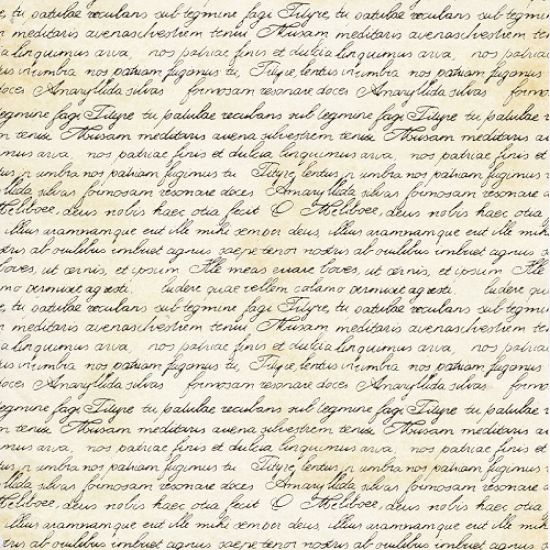 tu patulae recubans sub tegmine fagi Tityre, tu oatulae recubans sub tegmine
meditaris avenasilvestrem tenui Musam meditaris avenasilvestrem
linquimus arva, nos patriae finis et dulcia linquimus arva, nos patriae
tus in umbra nos patriam fugimus tu, Tityre, lentus in umbra nos patriam fugimus
doces Amaryllida silvas formosam resonare doces Amaryllida silvas formosam
tegmine fagi Tityre tu patulae recubans sub tegmine fagi Tityre, tu patulae
tenui Musam meditaris avena silvestrem tenui Musam meditaris
linquimus arva, nos patriae finis et dulcia linquimus arva, nos patriae finis et
tus in umbra nos patriam fugimus tu Tityre, lentus in umbra nos patriam fugimus
silvas formosam resonare doces Amaryllida silvas formosam resonare
Meliboee, deus nobis haec otia fecit O Meliboee, deus nobis haec otia
illius aramnamque erit ille mihi semper deus, illius aramnamque erit ille
ab ovilibus imbuet agnus saepe tenor nostris ab ovilibus imbuet agnus
boves, ut cernis, et ipsum Ille meas errare boves, ut cernis, et ipsum
calamo permisit agresti. ludere quae vellem calamo permisit agresti. ludere
tu oatulae recubans sub tegmine fagi Tityre, tu oatulae recubans sub tegmine
meditaris avenasilvestrem tenui Musam meditaris avenasilvestrem
linquimus arva, nos patriae finis et dulcia linquimus arva, nos patriae
tus in umbra nos patriam fugimus tu, Tityre, lentus in umbra nos patriam fugimus
doces Amaryllida silvas formosam resonare doces Amaryllida silvas
tegmine fagi Tityre tu patulae recubans sub tegmine fagi Tityre, tu patulae
tenui Musam meditaris avena silvestrem tenui Musam meditaris
linquimus arva, nos patriae finis et dulcia linquimus arva, nos patriae finis et
tus in umbra nos patriam fugimus tu Tityre, lentus in umbra nos patriam fugimus
silvas formosam resonare doces Amaryllida silvas formosam resonare
Meliboee, deus nobis haec otia fecit O Meliboee, deus nobis haec otia
illius aramnamque erit ille mihi semper deus, illius aramnamque erit ille
ab ovilibus imbuet agnus saepe tenor nostris ab ovilibus imbuet agnus